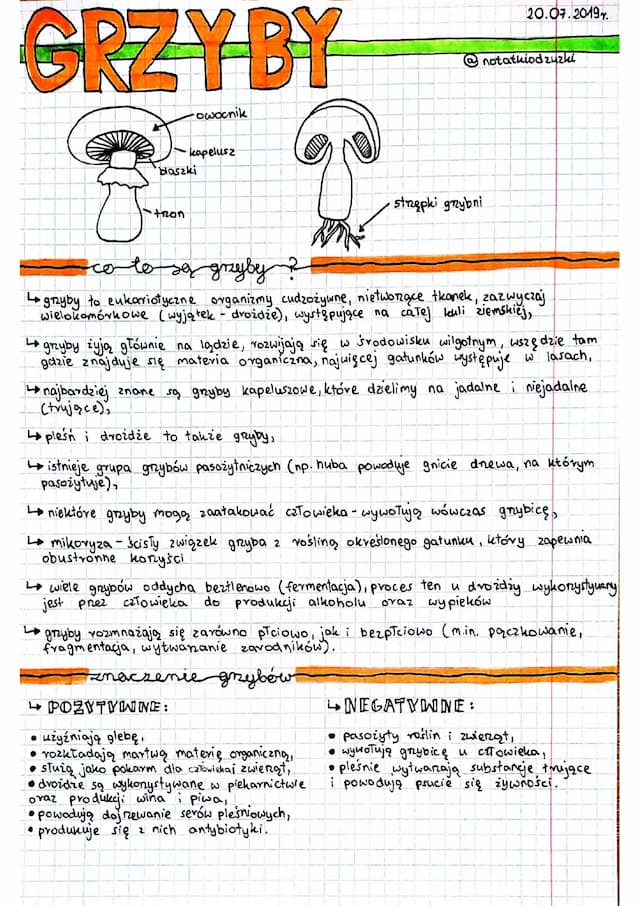 GRZYBY
20.07.2019r.
@notatkiodzuzki
owocnik
kapelusz
blaszki
tron
strzępki grzybni
co to są grzyby?
↳ grzyby to eukariotyczne organizmy cudzożywne, nietworzące tkanek, zazwyczaj
wielokomórkowe (wyjątek - drożdże), występujące na całej kuli ziemskiej,
↳ grzyby żyją głównie na lądzie, rozwijają się w środowisku wilgotnym, wszędzie tam
gdzie znajduje się materia organiczna, najwięcej gatunków występuje w lasach,
↳ najbardziej znane są grzyby kapeluszowe, które dzielimy na jadalne i niejadalne
(trujące),
↳ pleśń i drożdże to także grzyby,
↳ istnieje grupa grzybów pasożytniczych (np. huba powoduje gnicie drzewa, na którym
pasożytuje),
↳ niektóre grzyby mogą zaatakować człowieka - wywołują wówczas grzybicę,
↳ mikoryza - ścisły związek grzyba z rośliną określonego gatunku, który zapewnia
obustronne korzyści
↳ wiele grzybów oddycha beztlenowo (fermentacja), proces ten u drożdży wykorzystywany
jest przez człowieka do produkcji alkoholu oraz wypieków
↳ grzyby rozmnażają się zarówno płciowo, jak i bezpłciowo (m.in. pączkowanie,
fragmentacja, wytwarzanie zarodników).
znaczenie grzybów
↳ POZYTYWNE:
• użyźniają glebę,
• rozkładają martwą materię organiczną,
• służą jako pokarm dla człowieka i zwierząt,
• drożdże są wykorzystywane w piekarnictwie
oraz produkcji wina i piwa,
• powodują dojrzewanie serów pleśniowych,
• produkuje się z nich antybiotyki.
↳ NEGATYWNE:
• pasożyty roślin i zwierząt,
• wywołują grzybicę u człowieka,
• pleśnie wytwarzają substancje trujące
i powodują psucie się żywności.